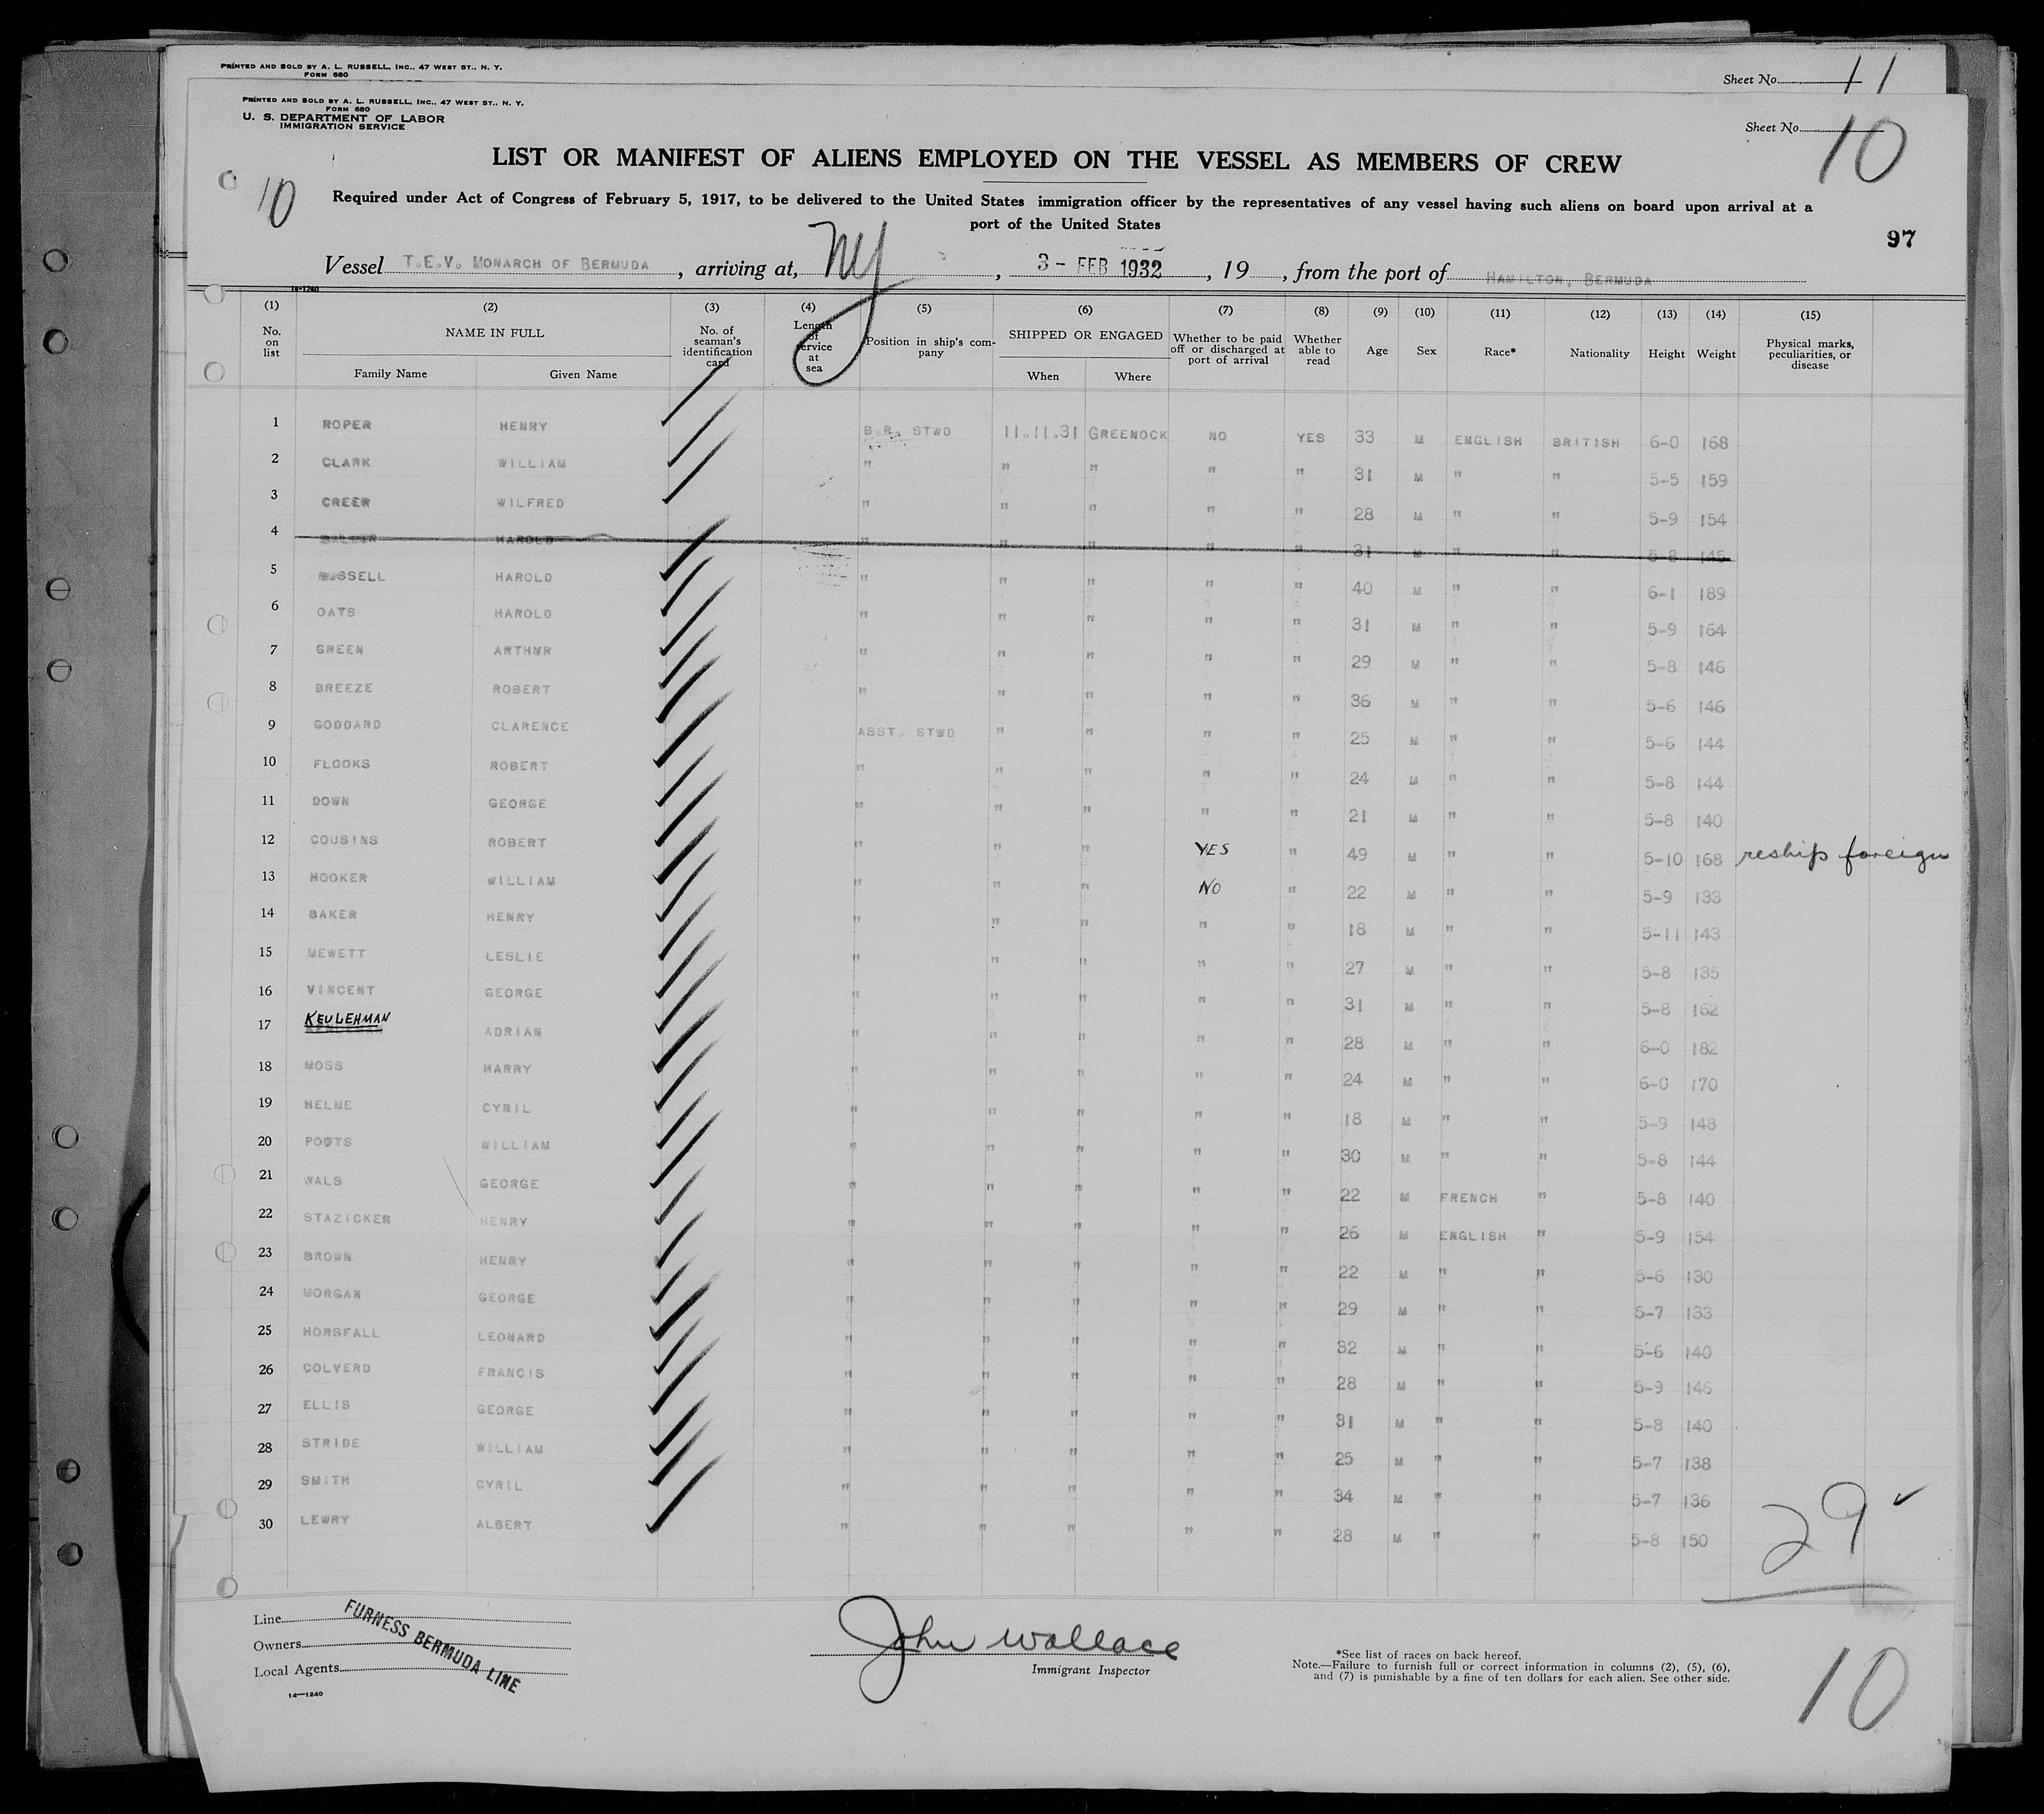 PRINTED AND SOLD BY A. L. RUSSELL, INC., 47 WEST ST., N. Y.
FORM 680
Sheet No. 11
PRINTED AND SOLD BY A. L. RUSSELL, INC., 47 WEST ST., N. Y.
FORM 680
U. S. DEPARTMENT OF LABOR
IMMIGRATION SERVICE
Sheet No. 10
LIST OR MANIFEST OF ALIENS EMPLOYED ON THE VESSEL AS MEMBERS OF CREW
10
Required under Act of Congress of February 5, 1917, to be delivered to the United States immigration officer by the representatives of any vessel having such aliens on board upon arrival at a
port of the United States
97
Vessel T.E.V. MONARCH OF BERMUDA, arriving at, NY, 3 - FEB 1932, 19 , from the port of HAMILTON, BERMUDA
14-1240
(1) (2) (3) (4) (5) (6) (7) (8) (9) (10) (11) (12) (13) (14) (15)
No. on list NAME IN FULL Family Name Given Name No. of seaman's identification card Length of service at sea Position in ship's company SHIPPED OR ENGAGED When Where Whether to be paid off or discharged at port of arrival Whether able to read Age Sex Race* Nationality Height Weight Physical marks, peculiarities, or disease
1 ROPER HENRY B.R. STWD 11.11.31 GREENOCK NO YES 33 M ENGLISH BRITISH 6-0 168
2 CLARK WILLIAM " " " " " 31 M " " 5-5 159
3 CREER WILFRED " " " " " 28 M " " 5-9 154
4 HAROLD " " " " " 31 M " " 5-8 145
5 RUSSELL HAROLD " " " " " 40 M " " 6-1 189
6 OATS HAROLD " " " " " 31 M " " 5-9 164
7 GREEN ARTHUR " " " " " 29 M " " 5-8 146
8 BREEZE ROBERT " " " " " 36 M " " 5-6 146
9 GODDARD CLARENCE ASST. STWD " " " " 25 M " " 5-6 144
10 FLOOKS ROBERT " " " " " 24 M " " 5-8 144
11 DOWN GEORGE " " " " " 21 M " " 5-8 140
12 COUSINS ROBERT " " " YES " 49 M " " 5-10 168 reship foreign
13 HOOKER WILLIAM " " " NO " 22 M " " 5-9 133
14 BAKER HENRY " " " " " 18 M " " 5-11 143
15 MEWETT LESLIE " " " " " 27 M " " 5-8 135
16 VINCENT GEORGE " " " " " 31 M " " 5-8 162
17 KEULEHMAN ADRIAN " " " " " 28 M " " 6-0 182
18 MOSS HARRY " " " " " 24 M " " 6-0 170
19 HELME CYRIL " " " " " 18 M " " 5-9 148
20 POUTS WILLIAM " " " " " 30 M " " 5-8 144
21 WALS GEORGE " " " " " 22 M FRENCH " 5-8 140
22 STAZICKER HENRY " " " " " 26 M ENGLISH " 5-9 154
23 BROWN HENRY " " " " " 22 M " " 5-6 130
24 MORGAN GEORGE " " " " " 29 M " " 5-7 133
25 HORSFALL LEONARD " " " " " 32 M " " 5-6 140
26 COLVERD FRANCIS " " " " " 28 M " " 5-9 146
27 ELLIS GEORGE " " " " " 31 M " " 5-8 140
28 STRIDE WILLIAM " " " " " 25 M " " 5-7 138
29 SMITH CYRIL " " " " " 34 M " " 5-7 136
30 LEWRY ALBERT " " " " " 28 M " " 5-8 150
29 ✓
Line
Owners
Local Agents
FURNESS BERMUDA LINE
14—1240
John Wallace
Immigrant Inspector
*See list of races on back hereof.
Note.—Failure to furnish full or correct information in columns (2), (5), (6),
and (7) is punishable by a fine of ten dollars for each alien. See other side.
10